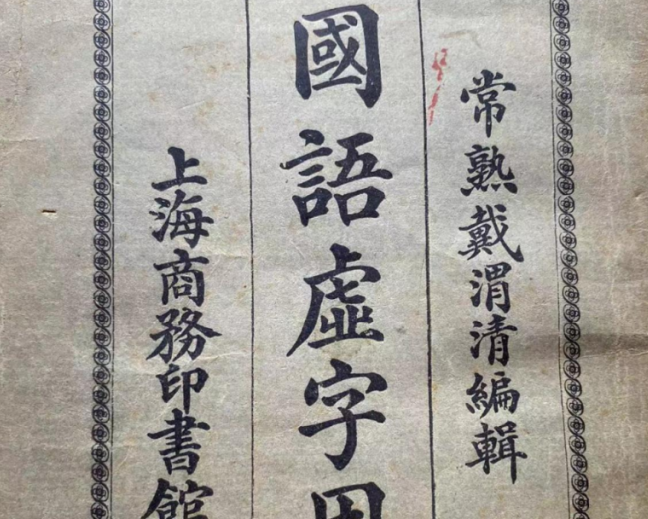 常熟戴渭清編輯
國語虛字用
上海商務印書館